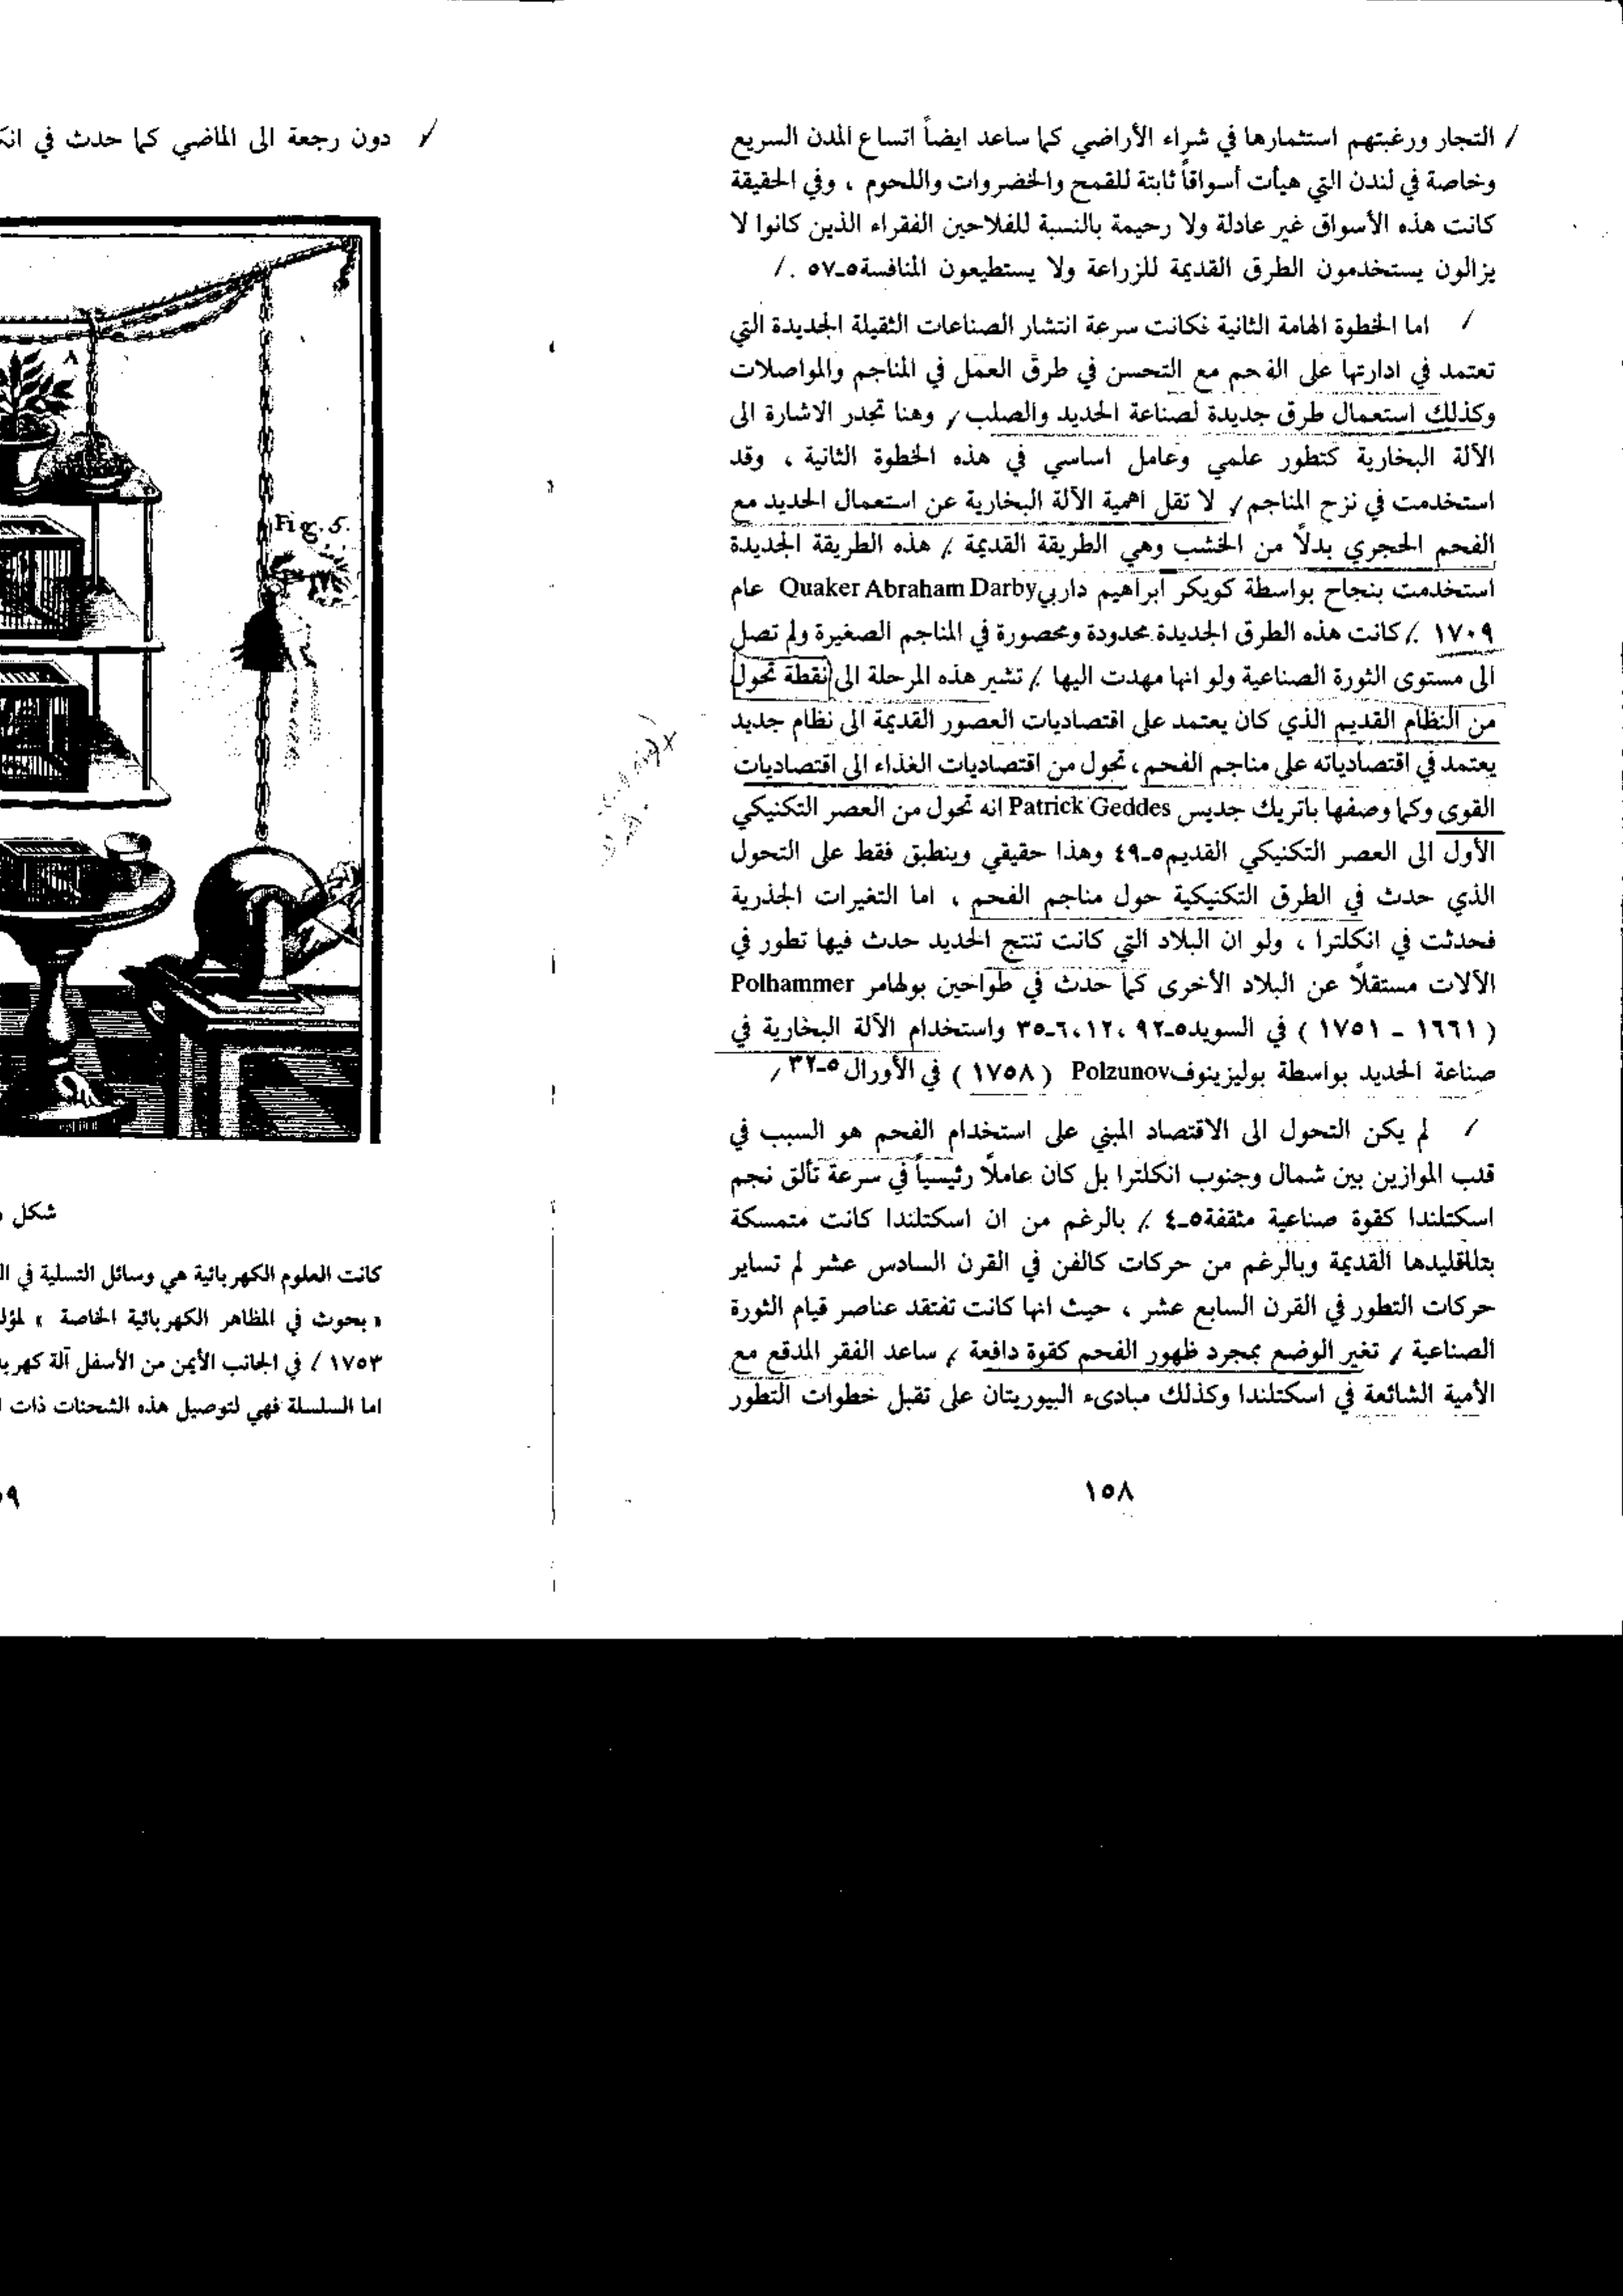 التجار ورغبتهم استثمارها في شراء الأراضي كما ساعد ايضاً اتساع المدن السريع
وخاصة في لندن التي هيأت أسواقاً ثابتة للقمح والخضروات واللحوم ، وفي الحقيقة
كانت هذه الأسواق غير عادلة ولا رحيمة بالنسبة للفلاحين الفقراء الذين كانوا لا
يزالون يستخدمون الطرق القديمة للزراعة ولا يستطيعون المنافسة٥-٥٧ .
اما الخطوة الهامة الثانية فكانت سرعة انتشار الصناعات الثقيلة الجديدة التي
تعتمد في ادارتها على الفحم مع التحسن في طرق العمل في المناجم والمواصلات
وكذلك استعمال طرق جديدة لصناعة الحديد والصلب / وهنا تجدر الاشارة الى
الآلة البخارية كتطور علمي وعامل اساسي في هذه الخطوة الثانية ، وقد
استخدمت في نزح المناجم / لا تقل اهمية الآلة البخارية عن استعمال الحديد مع
الفحم الحجري بدلاً من الخشب وهي الطريقة القديمة / هذه الطريقة الجديدة
استخدمت بنجاح بواسطة كويكر ابراهيم داربي Quaker Abraham Darby عام
١٧٠٩ / كانت هذه الطرق الجديدة محدودة ومحصورة في المناجم الصغيرة ولم تصل
الى مستوى الثورة الصناعية ولو انها مهدت اليها / تشير هذه المرحلة الى نقطة تحول
من النظام القديم الذي كان يعتمد على اقتصاديات العصور القديمة الى نظام جديد
يعتمد في اقتصادياته على مناجم الفحم ، تحول من اقتصاديات الغذاء الى اقتصاديات
القوى وكما وصفها باتريك جديس Patrick Geddes انه تحول من العصر التكنيكي
الأول الى العصر التكنيكي القديم٥-٤٩ وهذا حقيقي وينطبق فقط على التحول
الذي حدث في الطرق التكنيكية حول مناجم الفحم ، اما التغيرات الجذرية
فحدثت في انكلترا ، ولو ان البلاد التي كانت تنتج الحديد حدث فيها تطور في
الآلات مستقلاً عن البلاد الأخرى كما حدث في طواحين بولهامر Polhammer
( ١٦٦١ - ١٧٥١ ) في السويد٥-٩٢ ،٦،١٢-٣٥ واستخدام الآلة البخارية في
صناعة الحديد بواسطة بوليزينوف Polzunov ( ١٧٥٨ ) في الأورال ٥-٣٢ /
لم يكن التحول الى الاقتصاد المبني على استخدام الفحم هو السبب في
قلب الموازين بين شمال وجنوب انكلترا بل كان عاملاً رئيسياً في سرعة تألق نجم
اسكتلندا كقوة صناعية مثقفة٥-٤ / بالرغم من ان اسكتلندا كانت متمسكة
بتللقليدها القديمة وبالرغم من حركات كالفن في القرن السادس عشر لم تساير
حركات التطور في القرن السابع عشر ، حيث انها كانت تفتقد عناصر قيام الثورة
الصناعية / تغير الوضع بمجرد ظهور الفحم كقوة دافعة / ساعد الفقر المدقع مع
الأمية الشائعة في اسكتلندا وكذلك مبادىء البيوريتان على تقبل خطوات التطور
١٥٨
دون رجعة الى الماضي كما حدث في
Fig. 5.
شكل
كانت العلوم الكهربائية هي وسائل التسلية في
« بحوث في المظاهر الكهربائية الخاصة »
١٧٥٣ / في الجانب الأيمن من الأسفل آلة
اما السلسلة فهي لتوصيل هذه الشحنات ذات